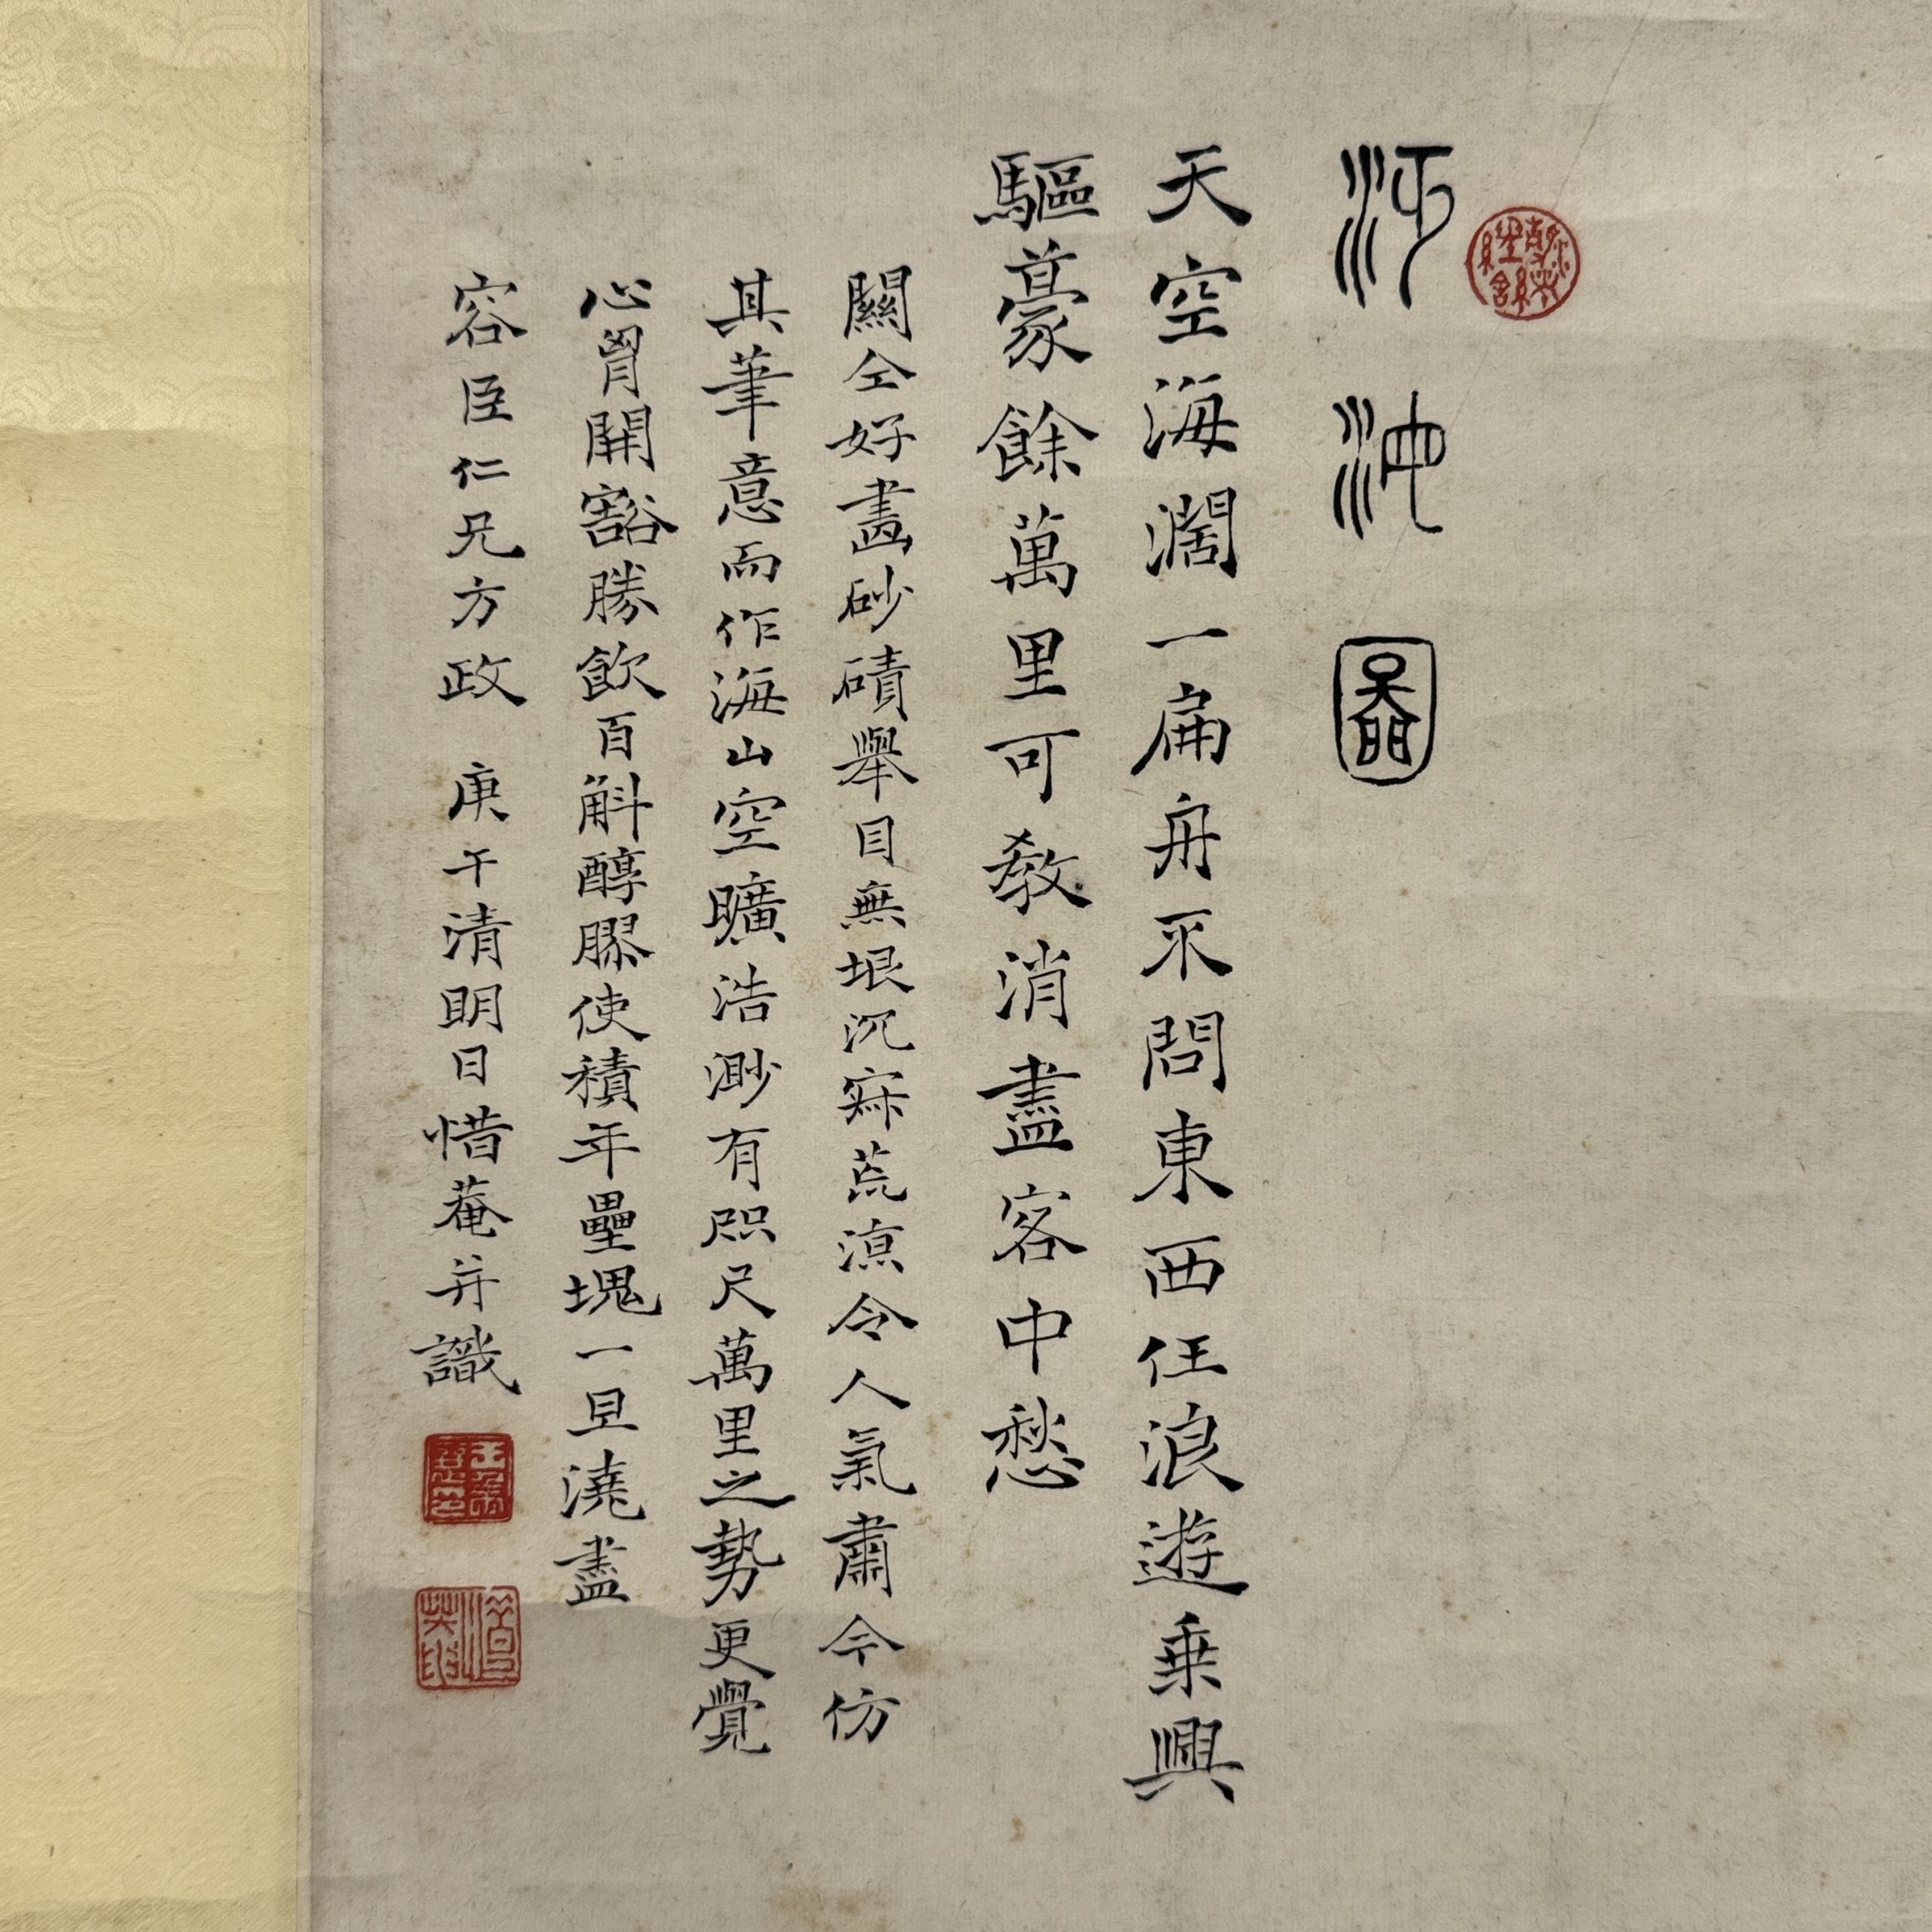 河池圖
天空海濶一扁舟不問東西任浪遊乗興
驅豪餘萬里可教消盡客中愁
關仝好畫砂磧舉目無垠沉寂荒涼令人氣肅今仿
其筆意而作海山空曠浩渺有咫尺萬里之勢更覺
心胷開豁勝飲百斛醇膠使積年壘塊一旦澆盡
容臣仁兄方政 庚午清明日惜菴并識